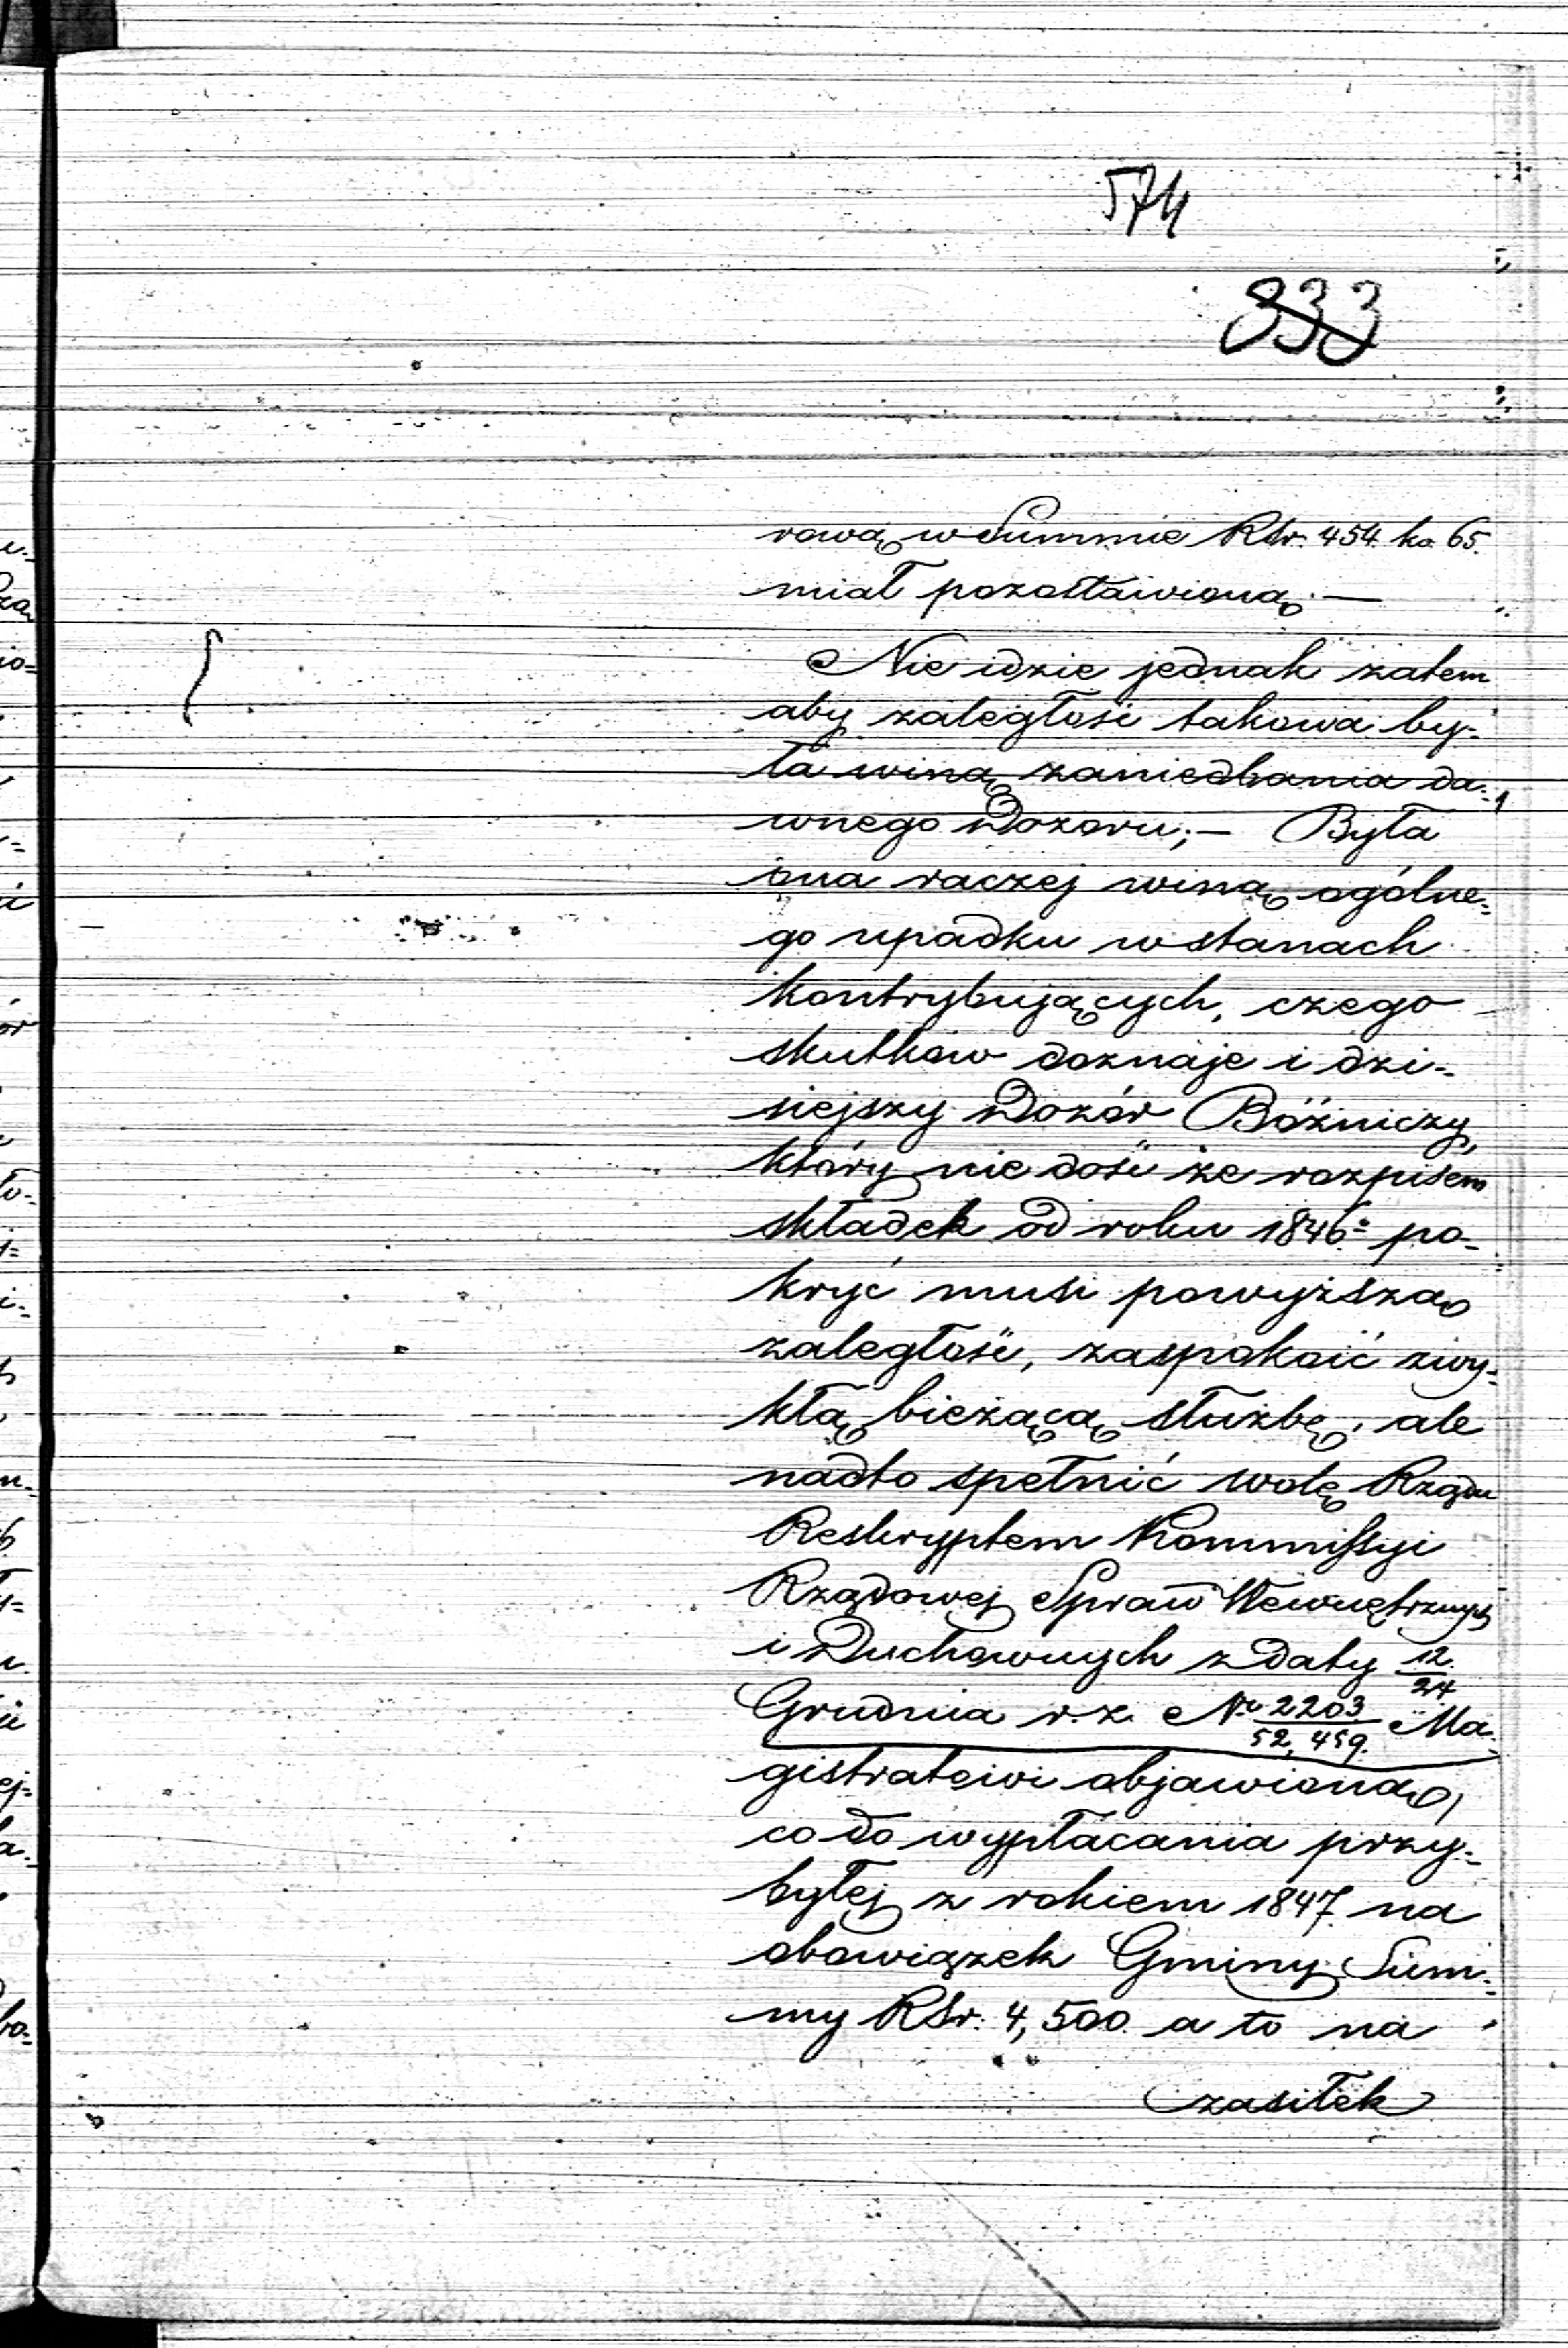 574
333
rową w Summie RSr. 454. ko. 65.
miał pozostawioną. —
Nie idzie jednak zatem
aby zaległość takowa by-
ła winą zaniedbania da-
wnego Dozoru; — Była
ona raczej winą ogólne-
go upadku w stanach
kontrybujących, czego
skutków doznaje i dzi-
siejszy Dozór Bóżniczy,
który nie dość że rozpisem
składek od roku 1846º po-
kryć musi powyższą
zaległość, zaspokoić zwy-
kłą bieżącą służbę, ale
nadto spełnić wolę Rządu
Reskryptem Kommissyi
Rządowej Spraw Wewnętrznych
i Duchownych z Daty 12/24
Grudnia r. z. Nº 2203/52,459. Ma-
gistratowi objawioną,
co do wypłacania przy-
byłej z rokiem 1847. na
obowiązek Gminy Sum-
my RSr. 4,500. a to na
zasiłek